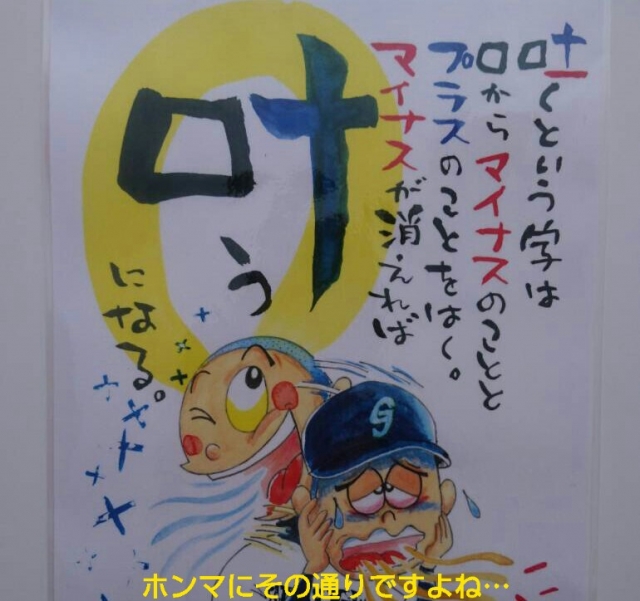 吐くという字は
口からマイナスのことと
プラスのことをはく。
マイナスが消えれば
叶う
になる。
ホンマにその通りですよね…